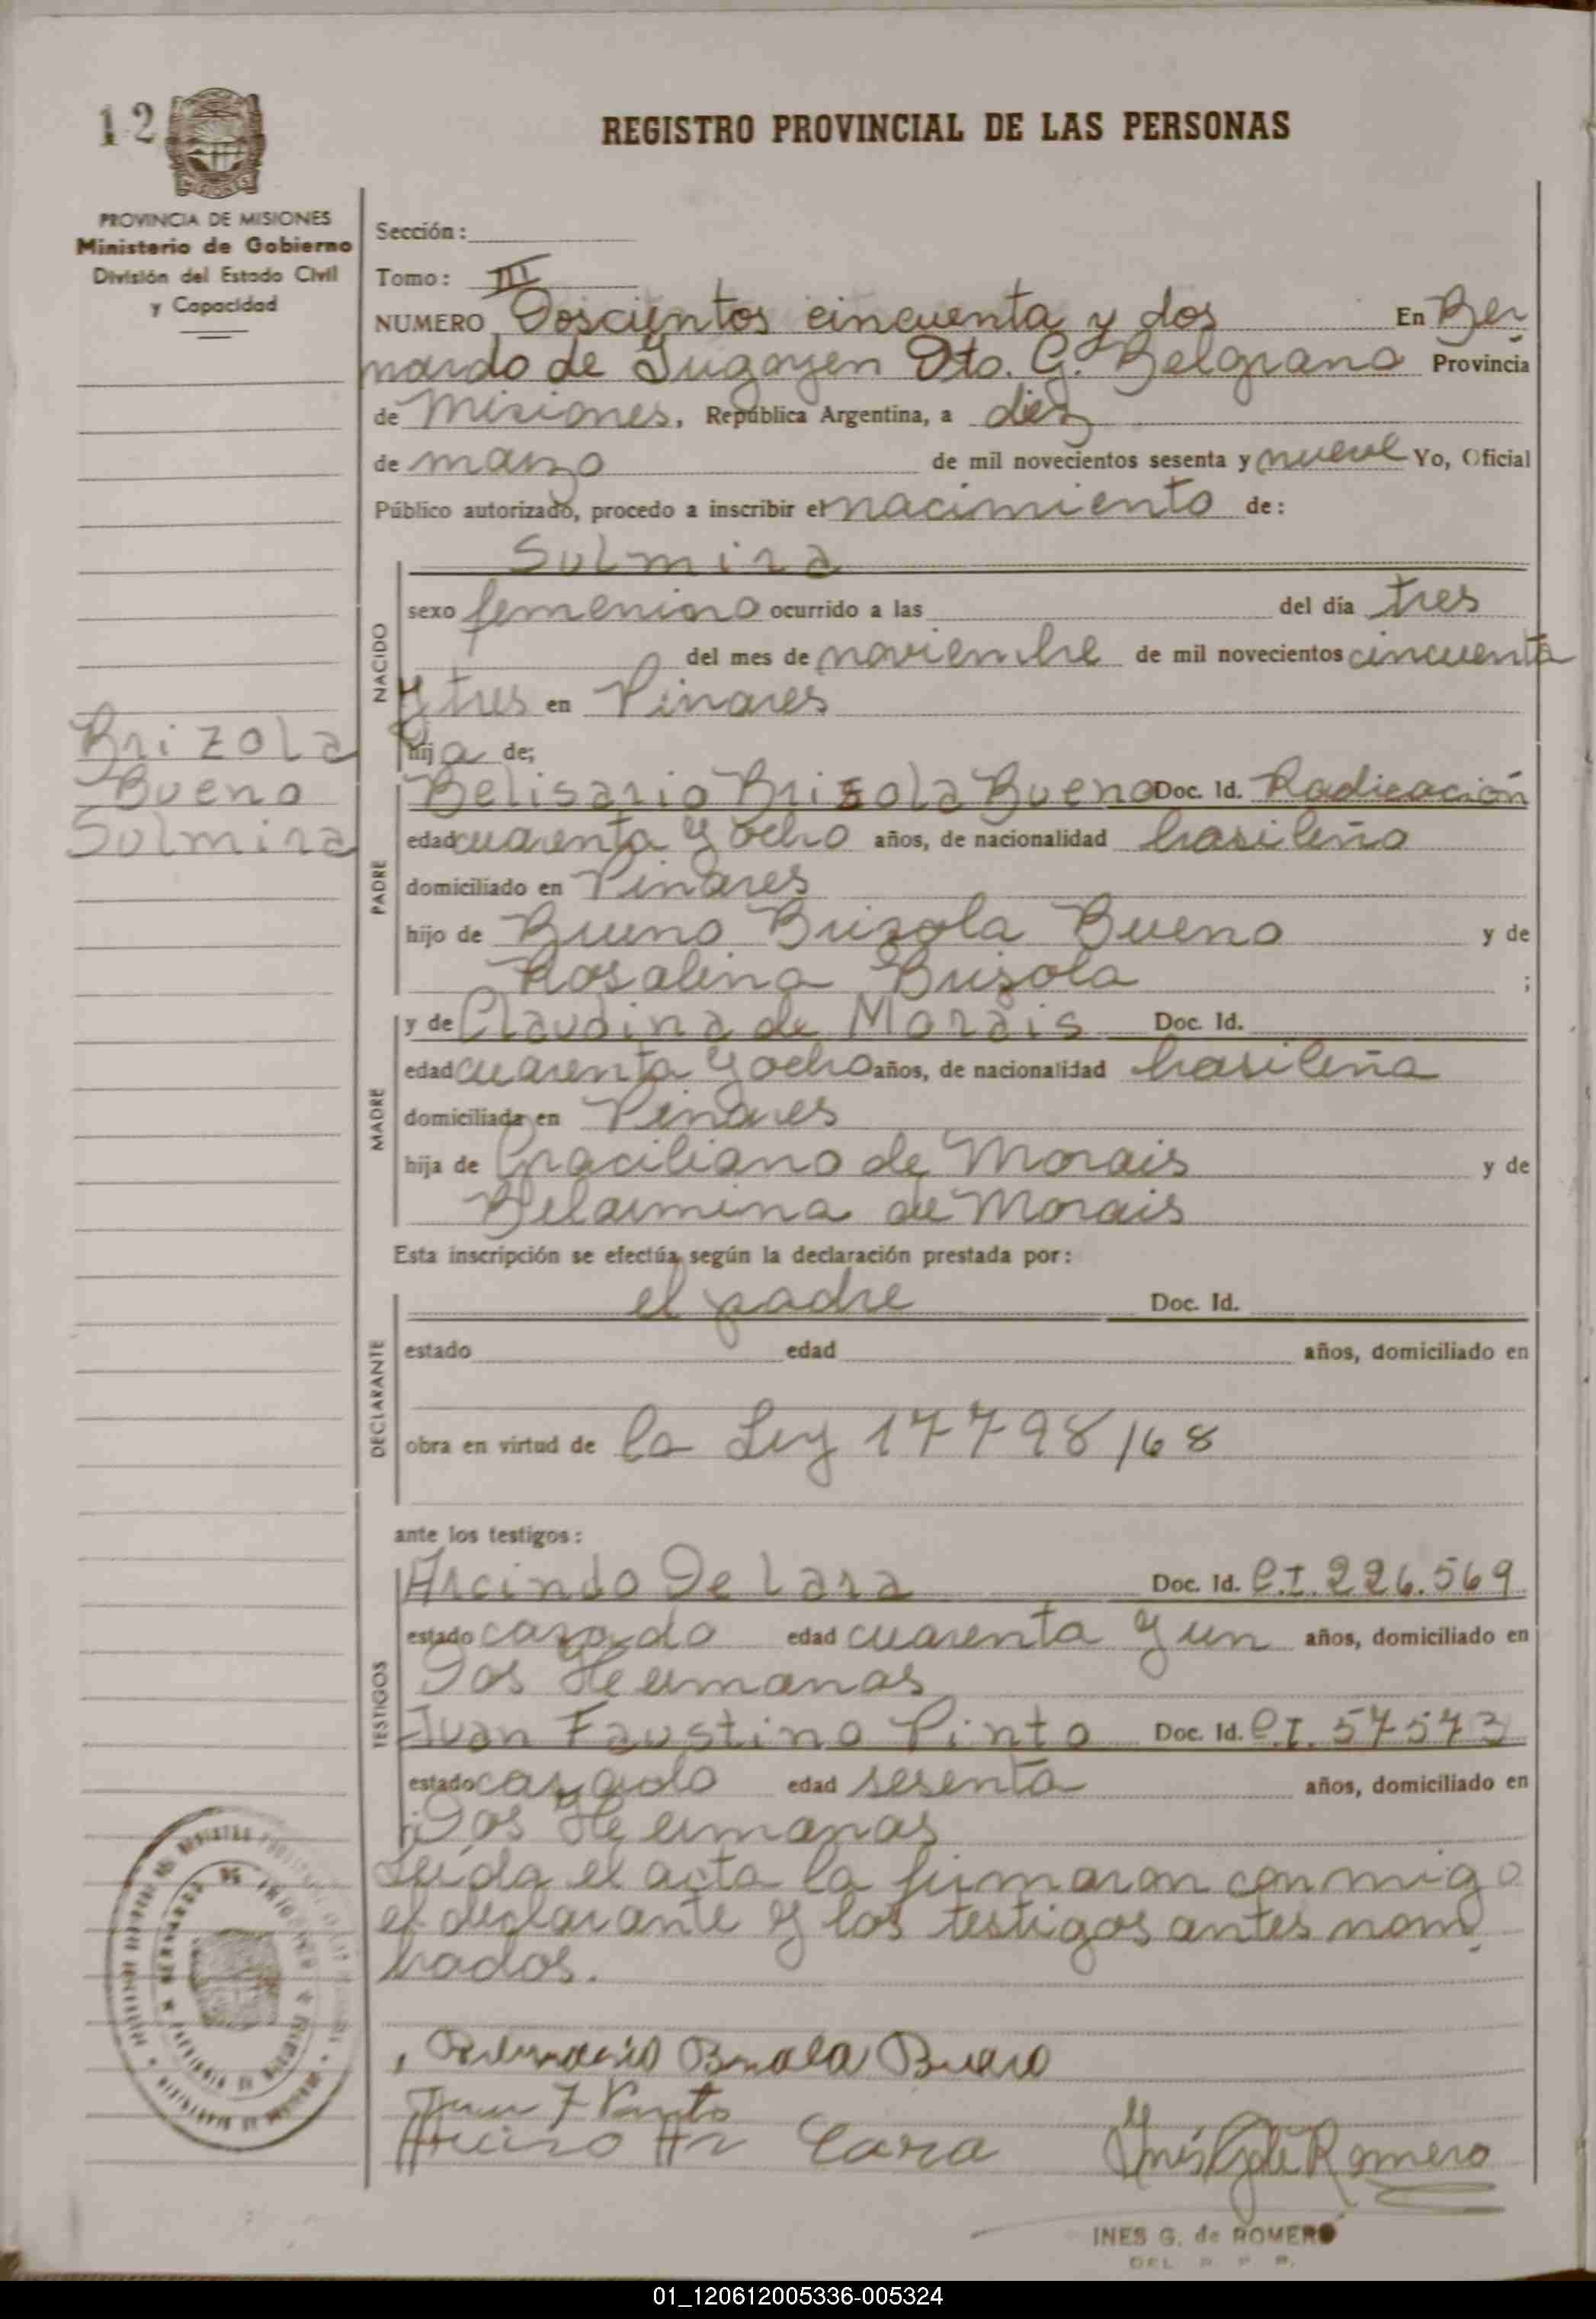 12
REGISTRO PROVINCIAL DE LAS PERSONAS
PROVINCIA DE MISIONES
Ministerio de Gobierno
División del Estado Civil
y Capacidad
Sección:
Tomo: III
NUMERO Doscientos cincuenta y dos En Ber
nardo de Irigoyen Dto. G. Belgrano Provincia
de Misiones, República Argentina, a diez
de marzo de mil novecientos sesenta y nueve Yo, Oficial
Público autorizado, procedo a inscribir el nacimiento de:
Sulmira
NACIDO
sexo femenino ocurrido a las del día tres
del mes de noviembre de mil novecientos cincuenta
y tres en Pinares
hija de;
Brizola
Bueno
Sulmira
PADRE
Belisario Brisola Bueno Doc. Id. Radicación
edad cuarenta y ocho años, de nacionalidad brasileño
domiciliado en Pinares
hijo de Bruno Brisola Bueno y de
Rosalina Brisola ;
MADRE
y de Claudina de Morais Doc. Id.
edad cuarenta y ocho años, de nacionalidad brasileña
domiciliada en Pinares
hija de Graciliano de Morais y de
Belarmina de Morais
Esta inscripción se efectúa según la declaración prestada por:
DECLARANTE
el padre Doc. Id.
estado edad años, domiciliado en
obra en virtud de la Ley 17798/68
ante los testigos:
TESTIGOS
Arcindo De Lara Doc. Id. C.I. 226.569
estado casado edad cuarenta y un años, domiciliado en
Dos Hermanas
Juan Faustino Pinto Doc. Id. C.I. 57573
estado casado edad sesenta años, domiciliado en
Dos Hermanas
Leída el acta la firmaron conmigo
el declarante y los testigos antes nom
brados.
Brisola Bueno
Juan F Pinto
Lara
Inés G de Romero
INES G. de ROMERO
DEL R. P. P.
01_120612005336-005324